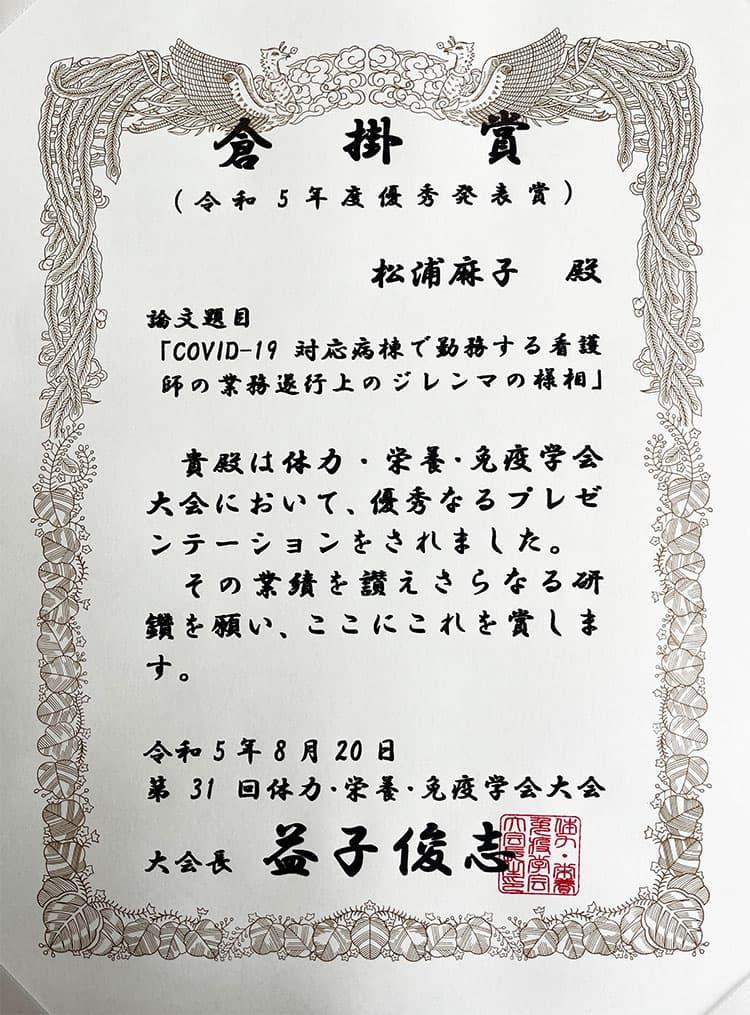 倉掛賞
(令和5年度優秀発表賞)
松浦麻子 殿
論文題目
「COVID-19 対応病棟で勤務する看護
師の業務遂行上のジレンマの様相」
貴殿は体力・栄養・免疫学会
大会において、優秀なるプレゼ
ンテーションをされました。
その業績を讃えさらなる研
鑽を願い、ここにこれを賞しま
す。
令和5年8月20日
第 31 回体力・栄養・免疫学会大会
大会長 益子俊志